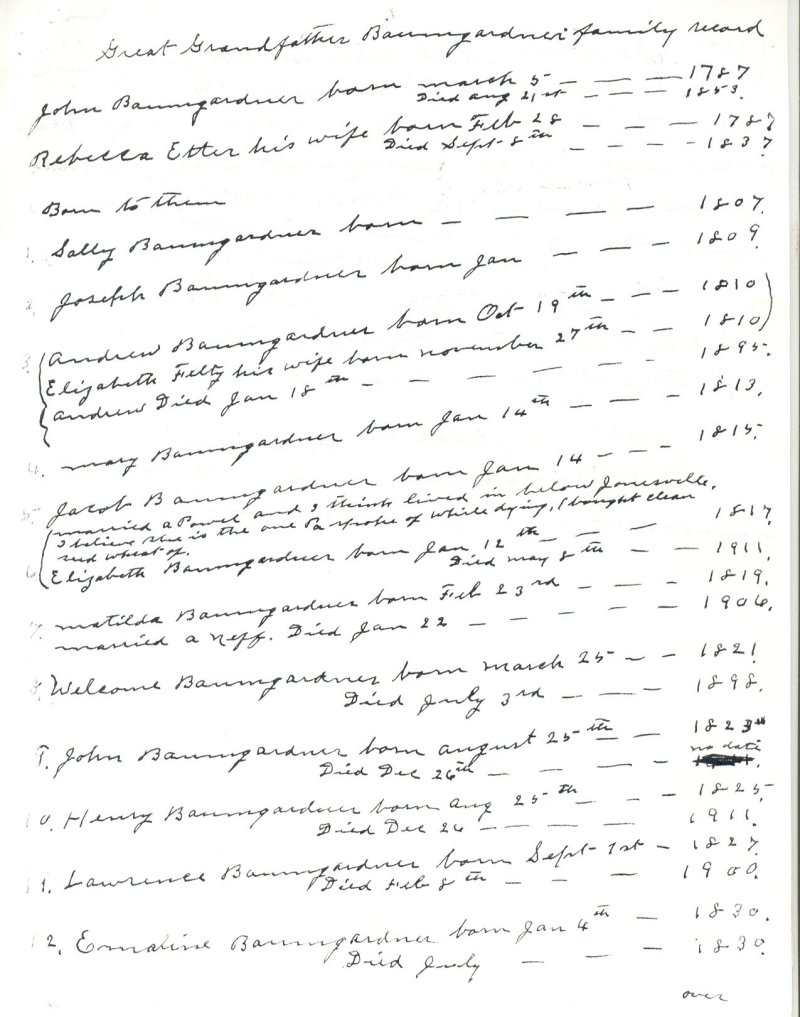 Great Grandfather Baumgardner family record
John Baumgardner born march 5 — — — 1787
Died aug 21st — — — 1853.
Rebecca Etter his wife born Feb 28 — — — 1787
Died Sept 8th — — — 1837
Born to them
1. Sally Baumgardner born — — — — 1807.
2. Joseph Baumgardner born Jan — — — 1809.
3. Andrew Baumgardner born Oct 19th — — — 1810
Elizabeth Felty his wife born november 27th — — 1810
Andrew Died Jan 18th — — — — — — 1895.
4. mary Baumgardner born Jan 14th — — — 1813.
5. Jacob Baumgardner born Jan 14 — — — 1815.
married a Powel and I think lived in below Jonesville,
I believe she is the one Pa spoke of while dying, I bought clean
seed wheat of.
6. Elizabeth Baumgardner born Jan 12th — — — 1817.
Died may 8th — — 1911.
7. matilda Baumgardner born Feb 23rd — — — 1819.
married a Neff. Died Jan 22 — — — — — 1906.
8. Welcome Baumgardner born march 25 — — 1821
Died July 3rd — — — 1898.
9. John Baumgardner born august 25th — — 1823
Died Dec 26th — — — — no date
10. Henry Baumgardner born aug 25th — — — 1825
Died Dec 26 — — — — 1911.
11. Lawrence Baumgardner born Sept 1st — 1827.
Died Feb 8th — — — 1900.
12. Ermaline Baumgardner born Jan 4th — 1830.
Died July — — — 1830.
over